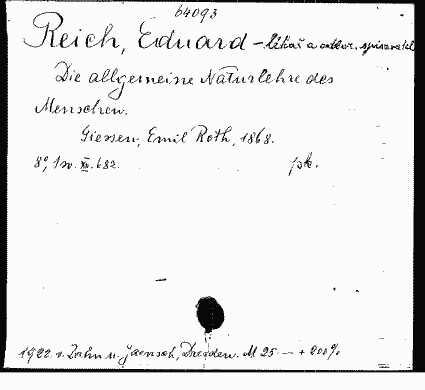 64093
Reich, Eduard – lékař a odbor. spisovatel
Die allgemeine Naturlehre des
Menschen.
Giessen, Emil Roth, 1868.
8°, 1 sv. XII. 682. ppk.
1922 v. Zahn u. Jaensch, Dresden. M 25 — + 200%